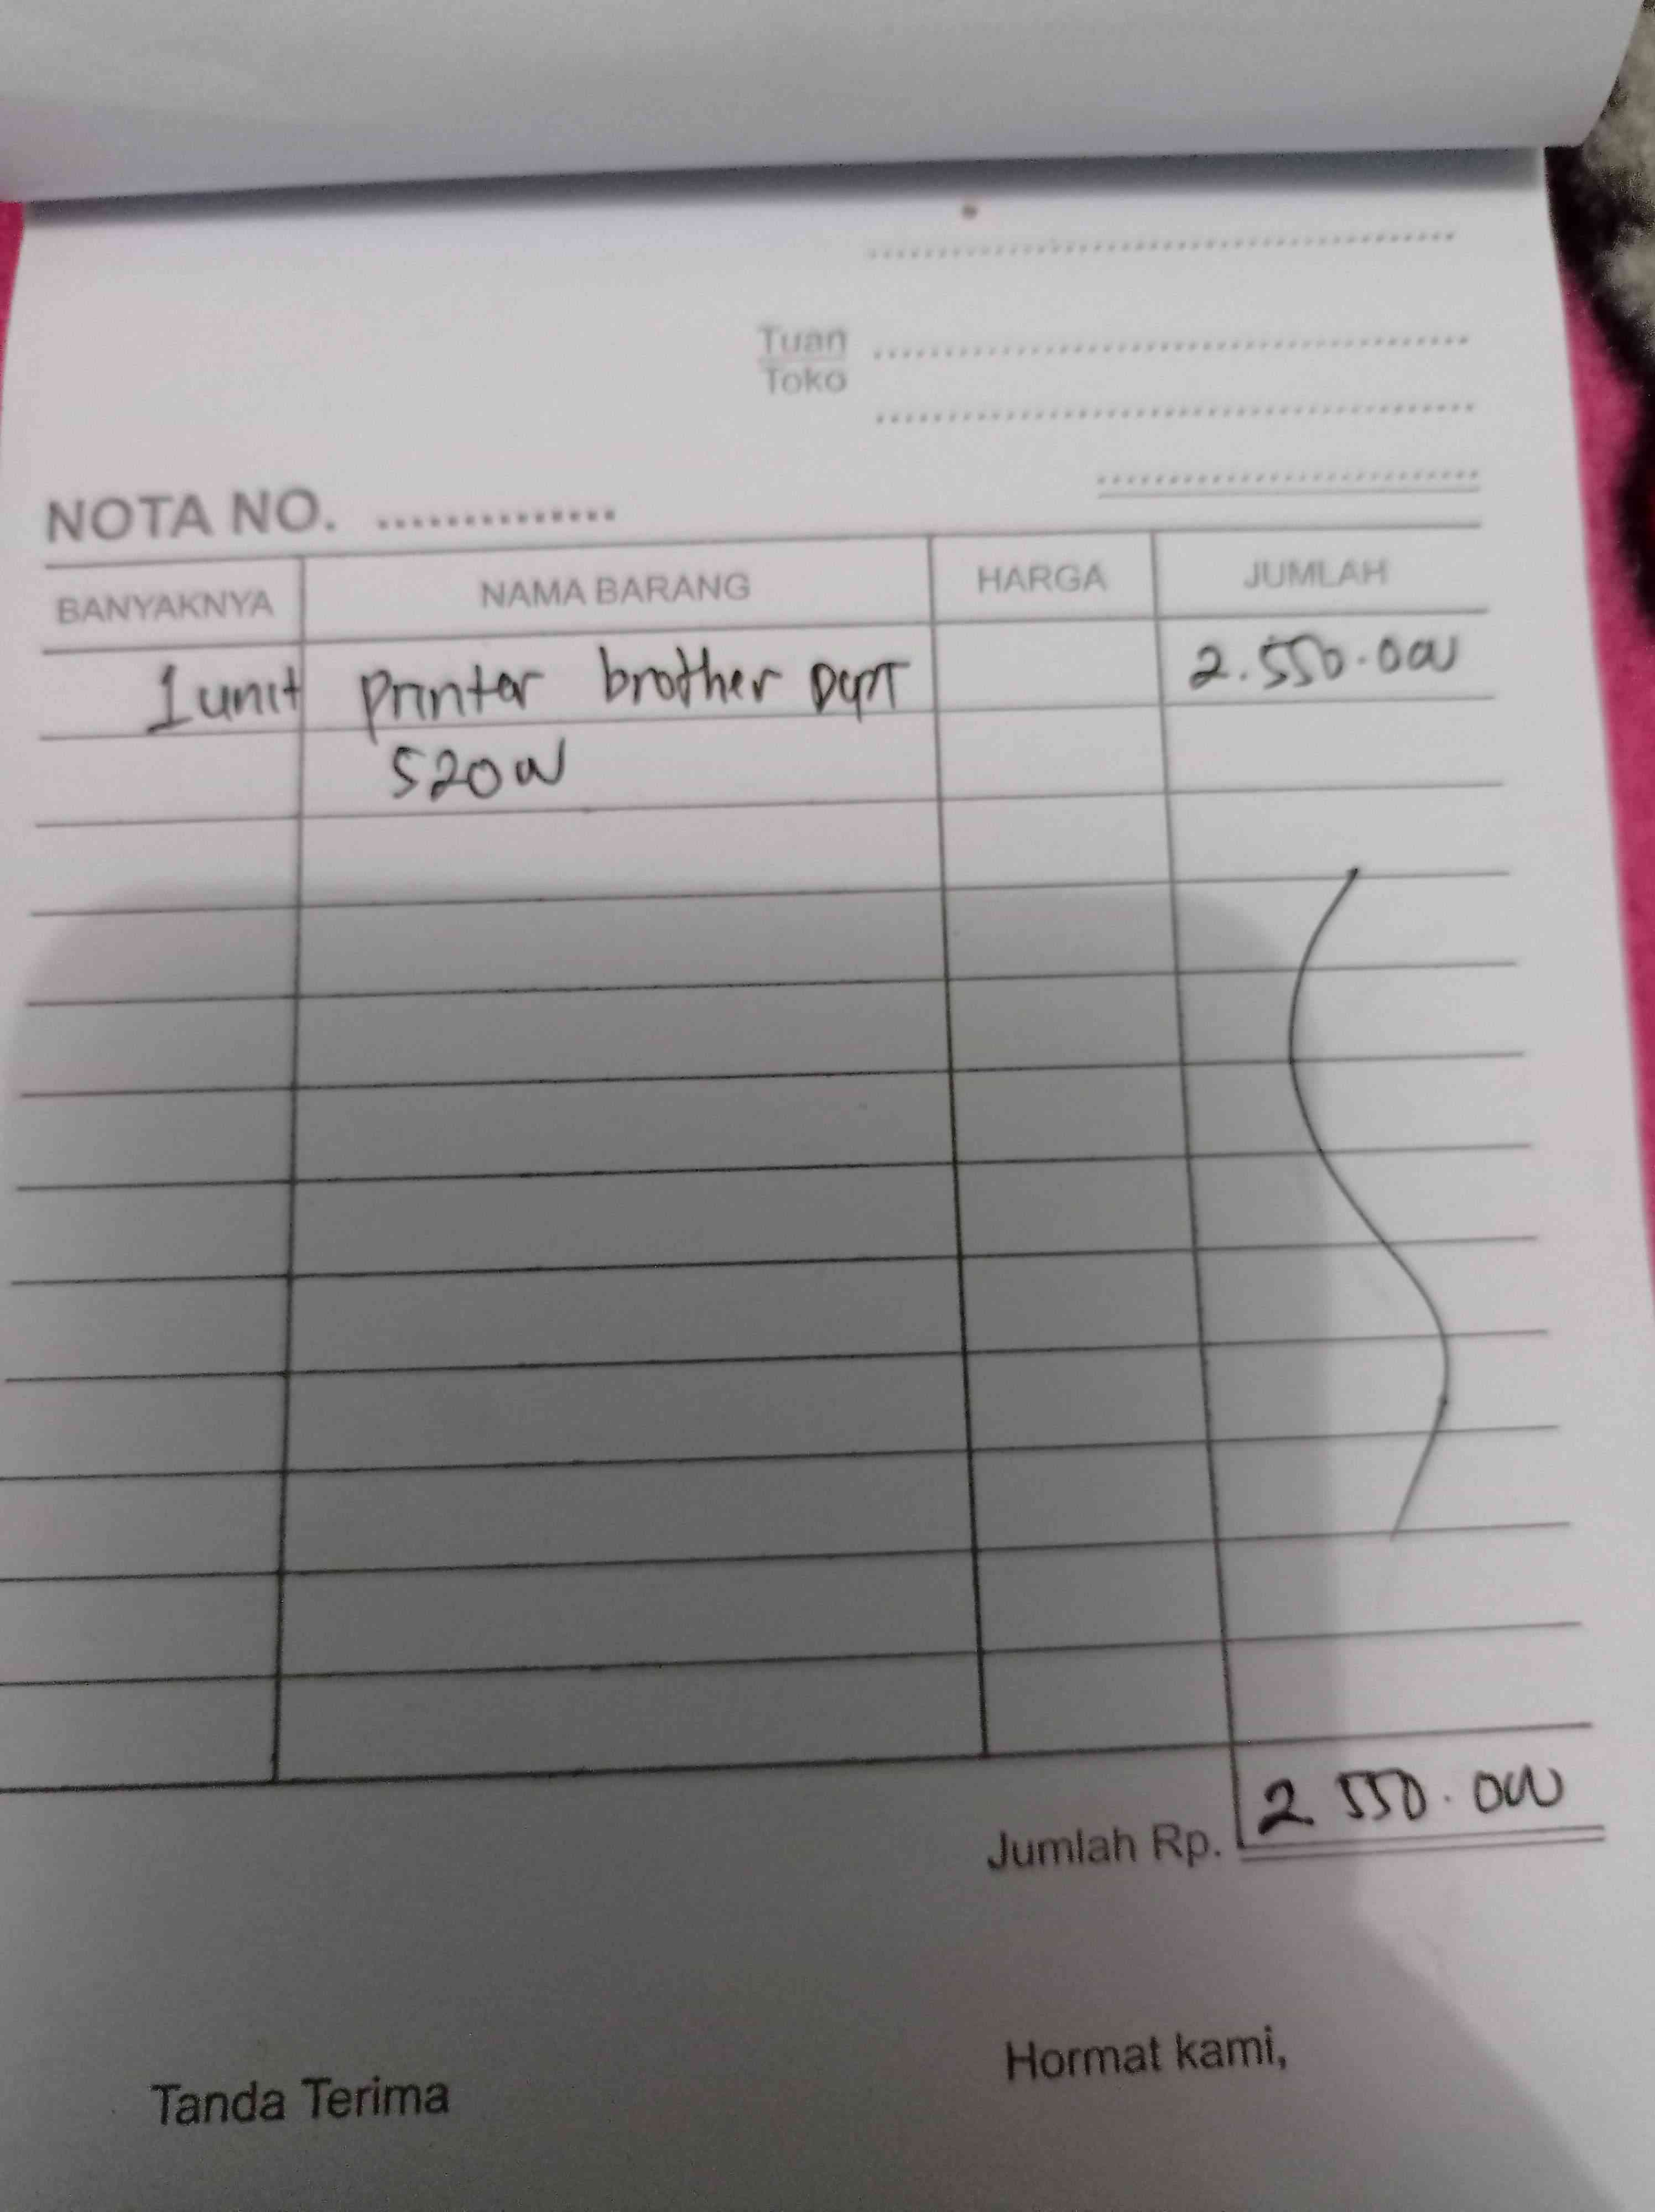 Tuan
Toko
NOTA NO. ..............
BANYAKNYA NAMA BARANG HARGA JUMLAH
1 unit printer brother DCPT 2.550.000
520W
Jumlah Rp. 2 550.000
Hormat kami,
Tanda Terima